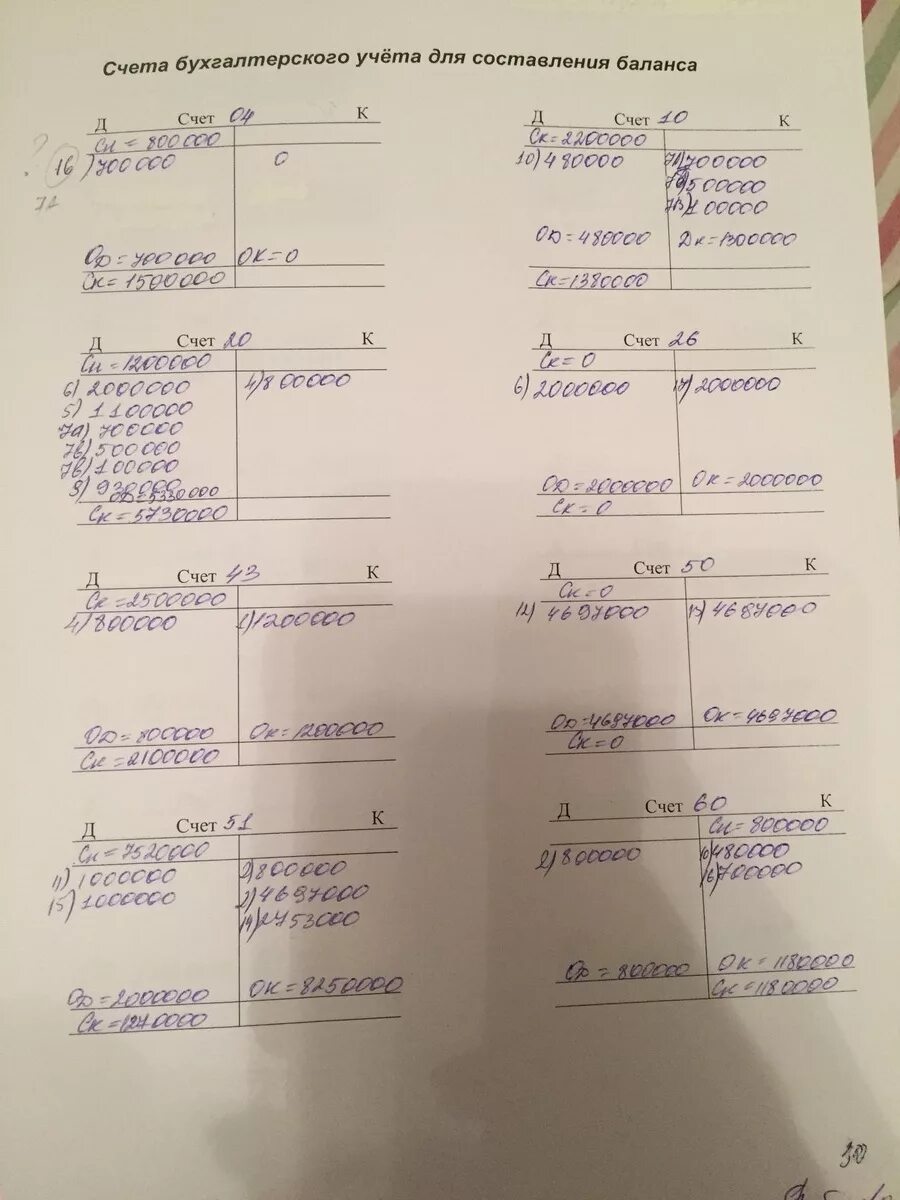 Счета бухгалтерского учёта для составления баланса
Д Счет 04 К
Сн = 800000
? 16) 700000 0
ОД = 700000 ОК = 0
Ск = 1500000
Д Счет 10 К
Ск = 2200000
10) 480000 7а) 700000
500000
100000
ОД = 480000 = 1300000
Ск = 1380000
Д Счет 20 К
Сн = 1200000
6) 2000000 4) 800000
5) 1100000
7а) 700000
7б) 500000
7в) 100000
930000
ОД = 5330000
Ск = 5730000
Д Счет 26 К
Ск = 0
6) 2000000 17) 2000000
ОД = 2000000 ОК = 2000000
Ск = 0
Д Счет 43 К
Ск = 2500000
4) 800000 1) 1200000
ОД = 800000 ОК = 1200000
Ск = 2100000
Д Счет 50 К
Ск = 0
12) 4697000 13) 4697000
ОД = 4697000 ОК = 4697000
Ск = 0
Д Счет 51 К
Сн = 7520000
11) 1000000 2) 800000
15) 1000000 4697000
14) 2753000
ОД = 2000000 ОК = 8250000
Ск = 1270000
Д Счет 60 К
Сн = 800000
2) 800000 480000
16) 700000
ОД = 800000 ОК = 1180000
Ск = 1180000
30